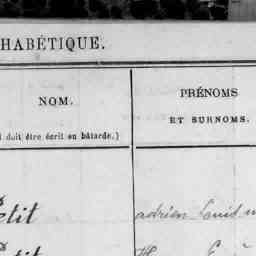 HABÉTIQUE.
NOM.
doit être écrit en bâtarde.)
PRÉNOMS
ET SURNOMS.
Petit adrien Louis